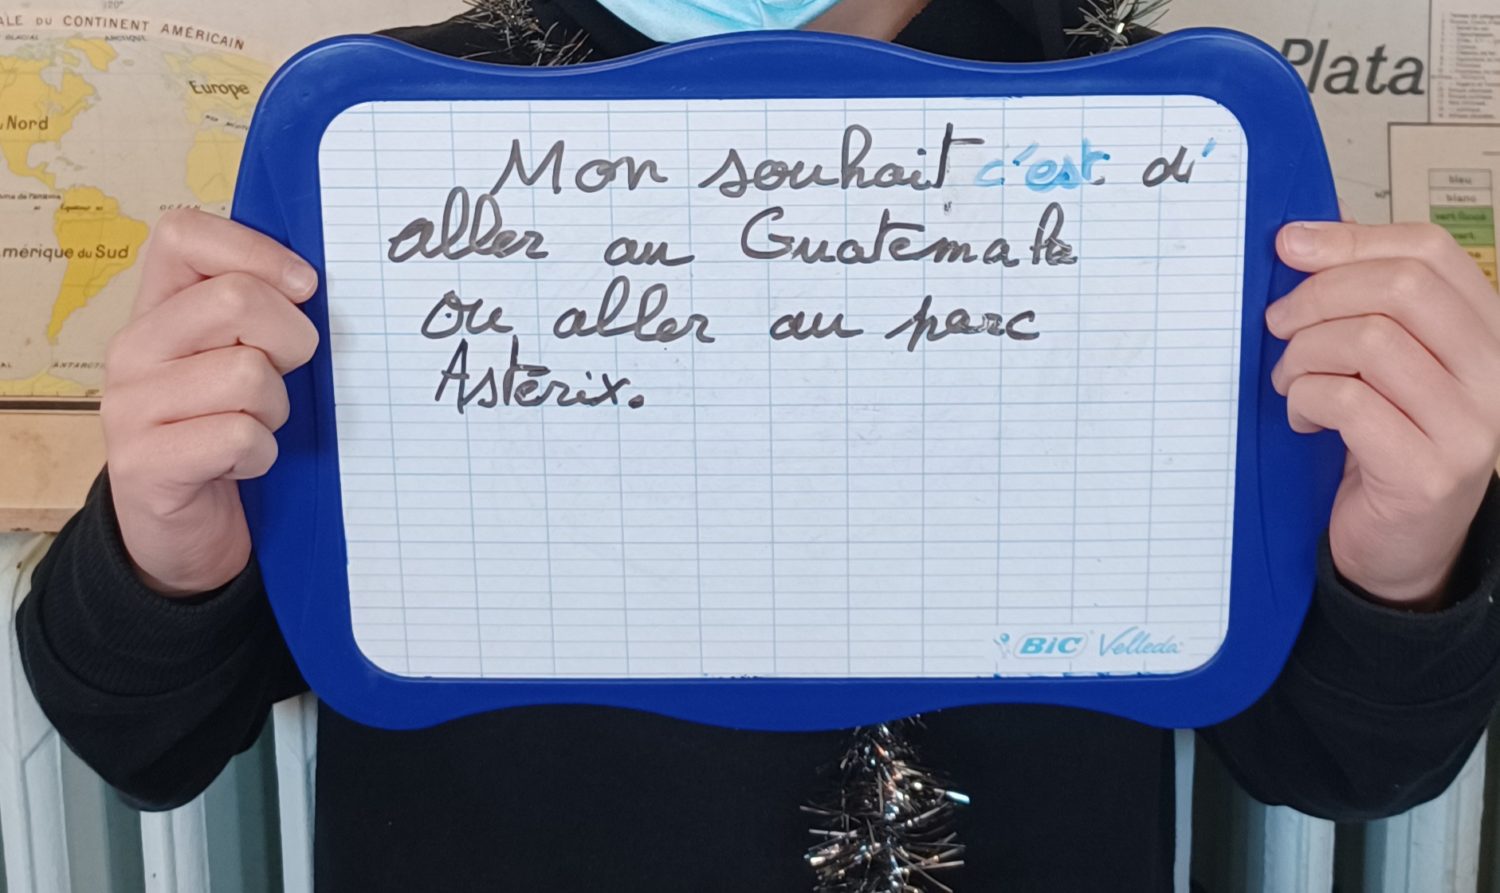 ALE DU CONTINENT AMÉRICAIN
Europe
Nord
mérique du Sud
Plata
Mon souhait c'est d'
aller au Guatemala
ou aller au parc
Astérix.
BIC Velleda